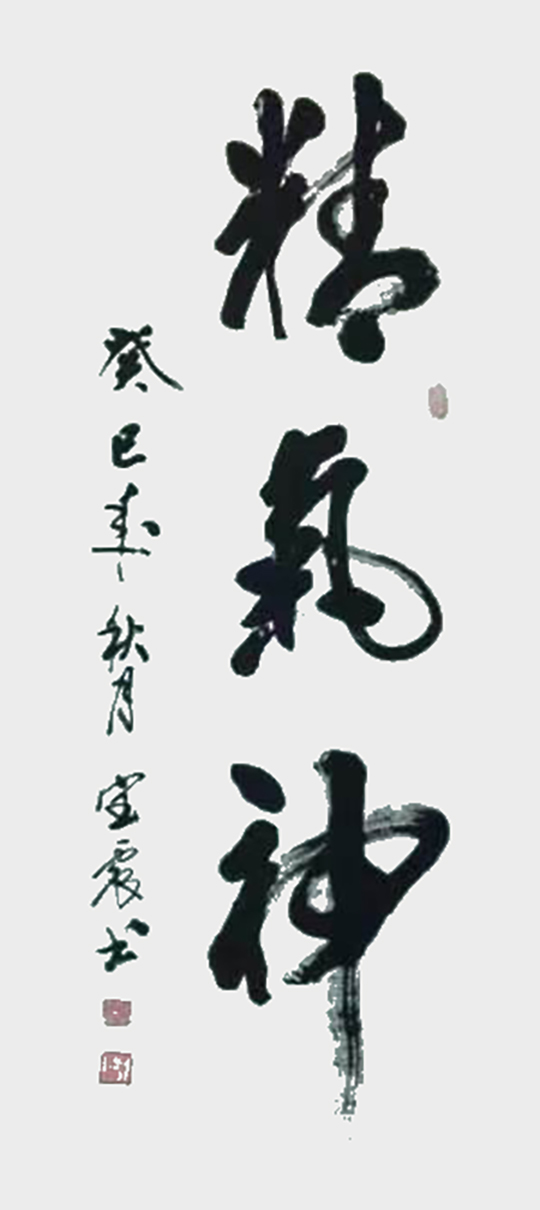 精氣神
癸巳年秋月 宝震书